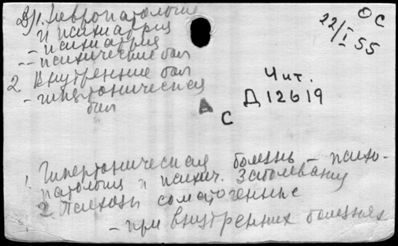 1. Невропатология
и психиатрия
- психиатрия
-- психические бол
2 Внутренние бол
- гипертоническая
бол
ОС
22/I 55
Чит.
Д12619
А
С
1. Гипертоническая болезнь - психо-
патология и психич. заболевания
2 Психозы соматогенные
- при внутренних болезнях